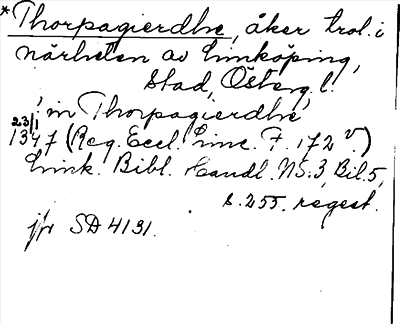 *Thorpagierdhe, åker trol. i
närheten av Linköping,
stad, Österg. l.
'in Thorpagierdhe'
23/1
1347 (Reg. Eccl. Linc. F. 172 v.)
Link. Bibl. Handl. NS:3 Bil. 5,
s. 255, regest.
jfr SD 4131.